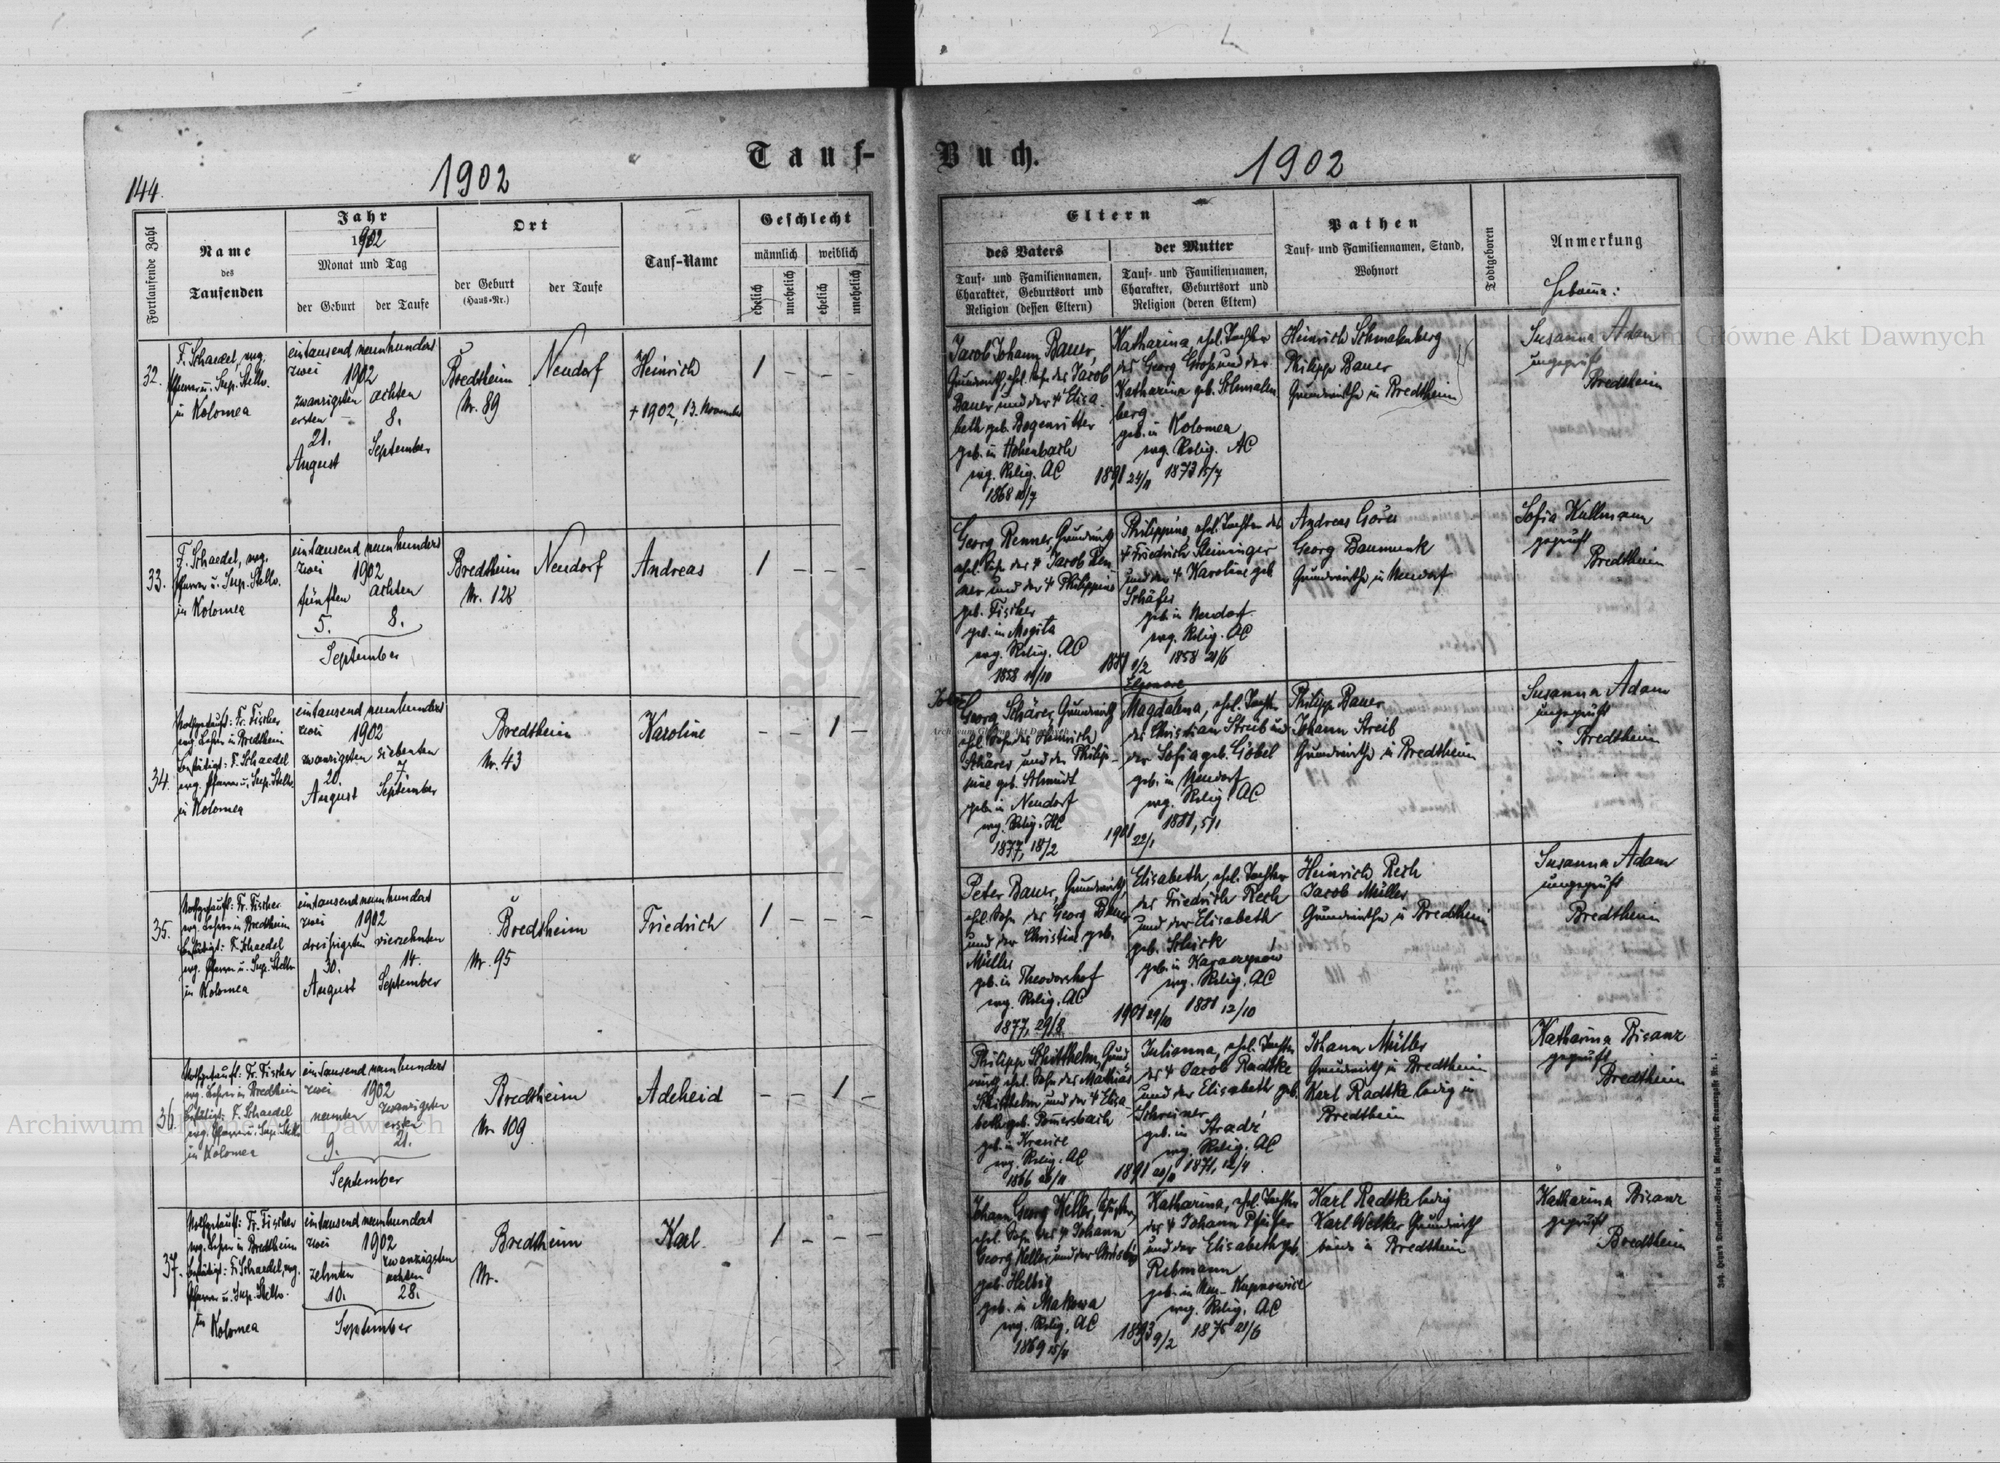 144.
1902
Tauf-
Buch.
1902
Fortlaufende Zahl
Name
des
Taufenden
Jahr
1902
Monat und Tag
der Geburt
der Taufe
Ort
der Geburt
(Haus-Nr.)
der Taufe
Tauf-Name
Geschlecht
männlich
weiblich
ehelich
unehelich
ehelich
unehelich
Eltern
des Vaters
Tauf- und Familiennamen,
Charakter, Geburtsort und
Religion (dessen Eltern)
der Mutter
Tauf- und Familiennamen,
Charakter, Geburtsort und
Religion (deren Eltern)
Pathen
Tauf- und Familiennamen, Stand,
Wohnort
Todtgeboren
Anmerkung
32.
F. Schaedel, evg.
Pfarrer u. Sup. Stellv.
in Kolomea
eintausend neunhundert
zwei 1902
zwanzigsten achten
ersten 8.
21.
August September
Bredtheim
Nr. 89
Neudorf
Heinrich
+ 1902, 13. November
1 - - -
Jacob Johann Bauer,
Grundwirth, ehel. Sohn des Jacob
Bauer und der + Elisa
beth geb. Bogenritter
geb. in Hohenbach
evg. Relig. AC
Katharina, ehel. Tochter
des Georg Groß und der
Katharina geb. Schmalen
berg
geb. in Kolomea
evg. Relig. AC
1891 24/11 1873 15/7
Heinrich Schmalenberg
Philipp Bauer
Grundwirthe in Bredtheim
Susanna Adam
ungeprüft
Bredtheim
33.
F. Schaedel, evg.
Pfarrer u. Sup. Stellv.
in Kolomea
eintausend neunhundert
zwei 1902
fünften achten
5. 8.
September
Bredtheim
Nr. 128
Neudorf
Andreas
1 - - -
Georg Renner, Grundwirth
ehel. Sohn des + Jacob Ren
ner und der + Philippine
geb. Fischer
geb. in Mogila
evg. Relig. AC
1858 19/10
Philippine, ehel. Tochter des
+ Friedrich Steininger
und der + Karoline geb
Schäfer
geb. in Neudorf
evg. Relig. AC
1/2 1858 21/6
Andreas Görs
Georg Baumunk
Grundwirthe in Neudorf
Sofia Kullmann
geprüft
Bredtheim
34.
Nothgetauft: Fr. Fischer
evg. Lehrer in Bredtheim
bestätigt: F. Schaedel
evg. Pfarrer u. Sup. Stellv.
in Kolomea
eintausend neunhundert
zwei 1902
zwanzigsten siebenten
20. 7.
August September
Bredtheim
Nr. 43
Karoline
- - 1 -
Georg Schärer, Grundwirth
ehel. Sohn des Heinrich
Schärer und der Philip-
pine geb. Schmidt
geb. in Neudorf
evg. Relig. HC
1877, 18/2
Eleonore
Magdalena, ehel. Tochter
des Christian Streib und
der Sofia geb. Göbel
geb. in Neudorf
evg. Relig. AC
1901 22/1 1881, 5/1
Philipp Bauer
Johann Streib
Grundwirthe in Bredtheim
Susanna Adam
ungeprüft
Bredtheim
35.
Nothgetauft: Fr. Fischer
evg. Lehrer in Bredtheim
bestätigt: F. Schaedel
evg. Pfarrer u. Sup. Stellv.
in Kolomea
eintausend neunhundert
zwei 1902
dreißigsten vierzehnten
30. 14.
August September
Bredtheim
Nr. 95
Friedrich
1 - - -
Peter Bauer, Grundwirth,
ehel. Sohn des Georg Bauer
und der Christine geb.
Müller
geb. in Theodorshof
evg. Relig. AC
1877, 29/8
Elisabeth, ehel. Tochter
des Friedrich Rech
und der Elisabeth
geb. Schick
geb. in
evg. Relig. AC
1901 29/10 1881 12/10
Heinrich Rech
Jacob Müller
Grundwirthe in Bredtheim
Susanna Adam
ungeprüft
Bredtheim
36.
Nothgetauft: Fr. Fischer
evg. Lehrer in Bredtheim
bestätigt: F. Schaedel
evg. Pfarrer u. Sup. Stellv.
in Kolomea
eintausend neunhundert
zwei 1902
neunten zwanzigsten
ersten
9. 21.
September
Bredtheim
Nr. 109
Adeheid
- - 1 -
Philipp Schiffthelm, Grund
wirth, ehel. Sohn des Mathias
Schiffthelm und der + Elisa
beth geb. Pommersbach
geb. in
evg. Relig. AC
Julianna, ehel. Tochter
des + Jacob Radtke
und der Elisabeth geb.
Schreiner
geb. in
evg. Relig. AC
1871, 12/4
Johann Müller
Grundwirth in Bredtheim
Karl Radtke ledig in
Bredtheim
Katharina Bisanz
geprüft
Bredtheim
37.
Nothgetauft: Fr. Fischer
evg. Lehrer in Bredtheim
bestätigt: F. Schaedel, evg.
Pfarrer u. Sup. Stellv.
in Kolomea
eintausend neunhundert
zwei 1902
zehnten zwanzigsten
achten
10. 28.
September
Bredtheim
Nr.
Karl
1 - - -
Johann Georg Keller,
ehel. Sohn des + Johann
Georg Keller und der
geb. Helbig
geb. in Makowa
evg. Relig. AC
Katharina, ehel. Tochter
des + Johann Pfeifer
und der Elisabeth geb.
Rebmann
geb. in
evg. Relig. AC
1893 9/2 1875 21/6
Karl Radtke ledig
Karl Welker Grundwirth
beide in Bredtheim
Katharina Bisanz
geprüft
Bredtheim
Archiwum Główne Akt Dawnych
Archiwum Główne Akt Dawnych